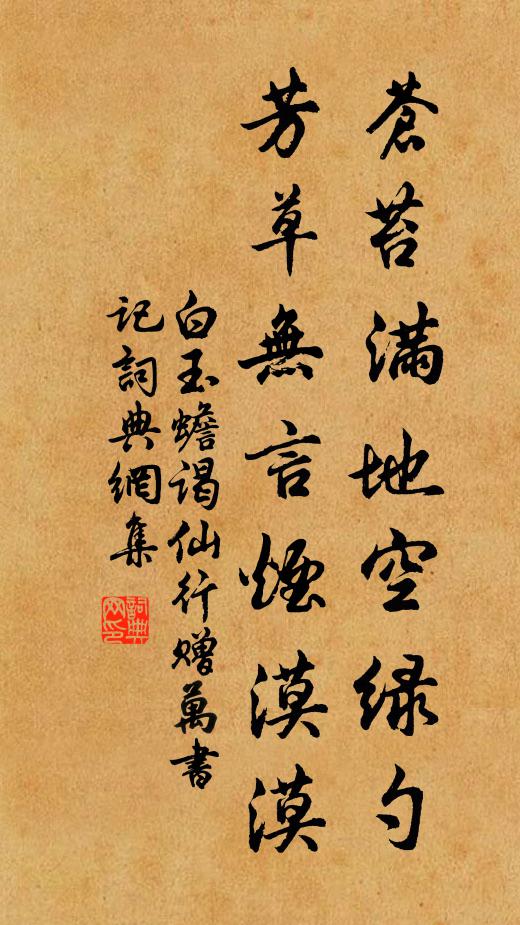 蒼苔滿地空綠勺
芳草無言煙漠漠
白玉蟾謁仙行贈萬書
記詞典網集
詞典
网印